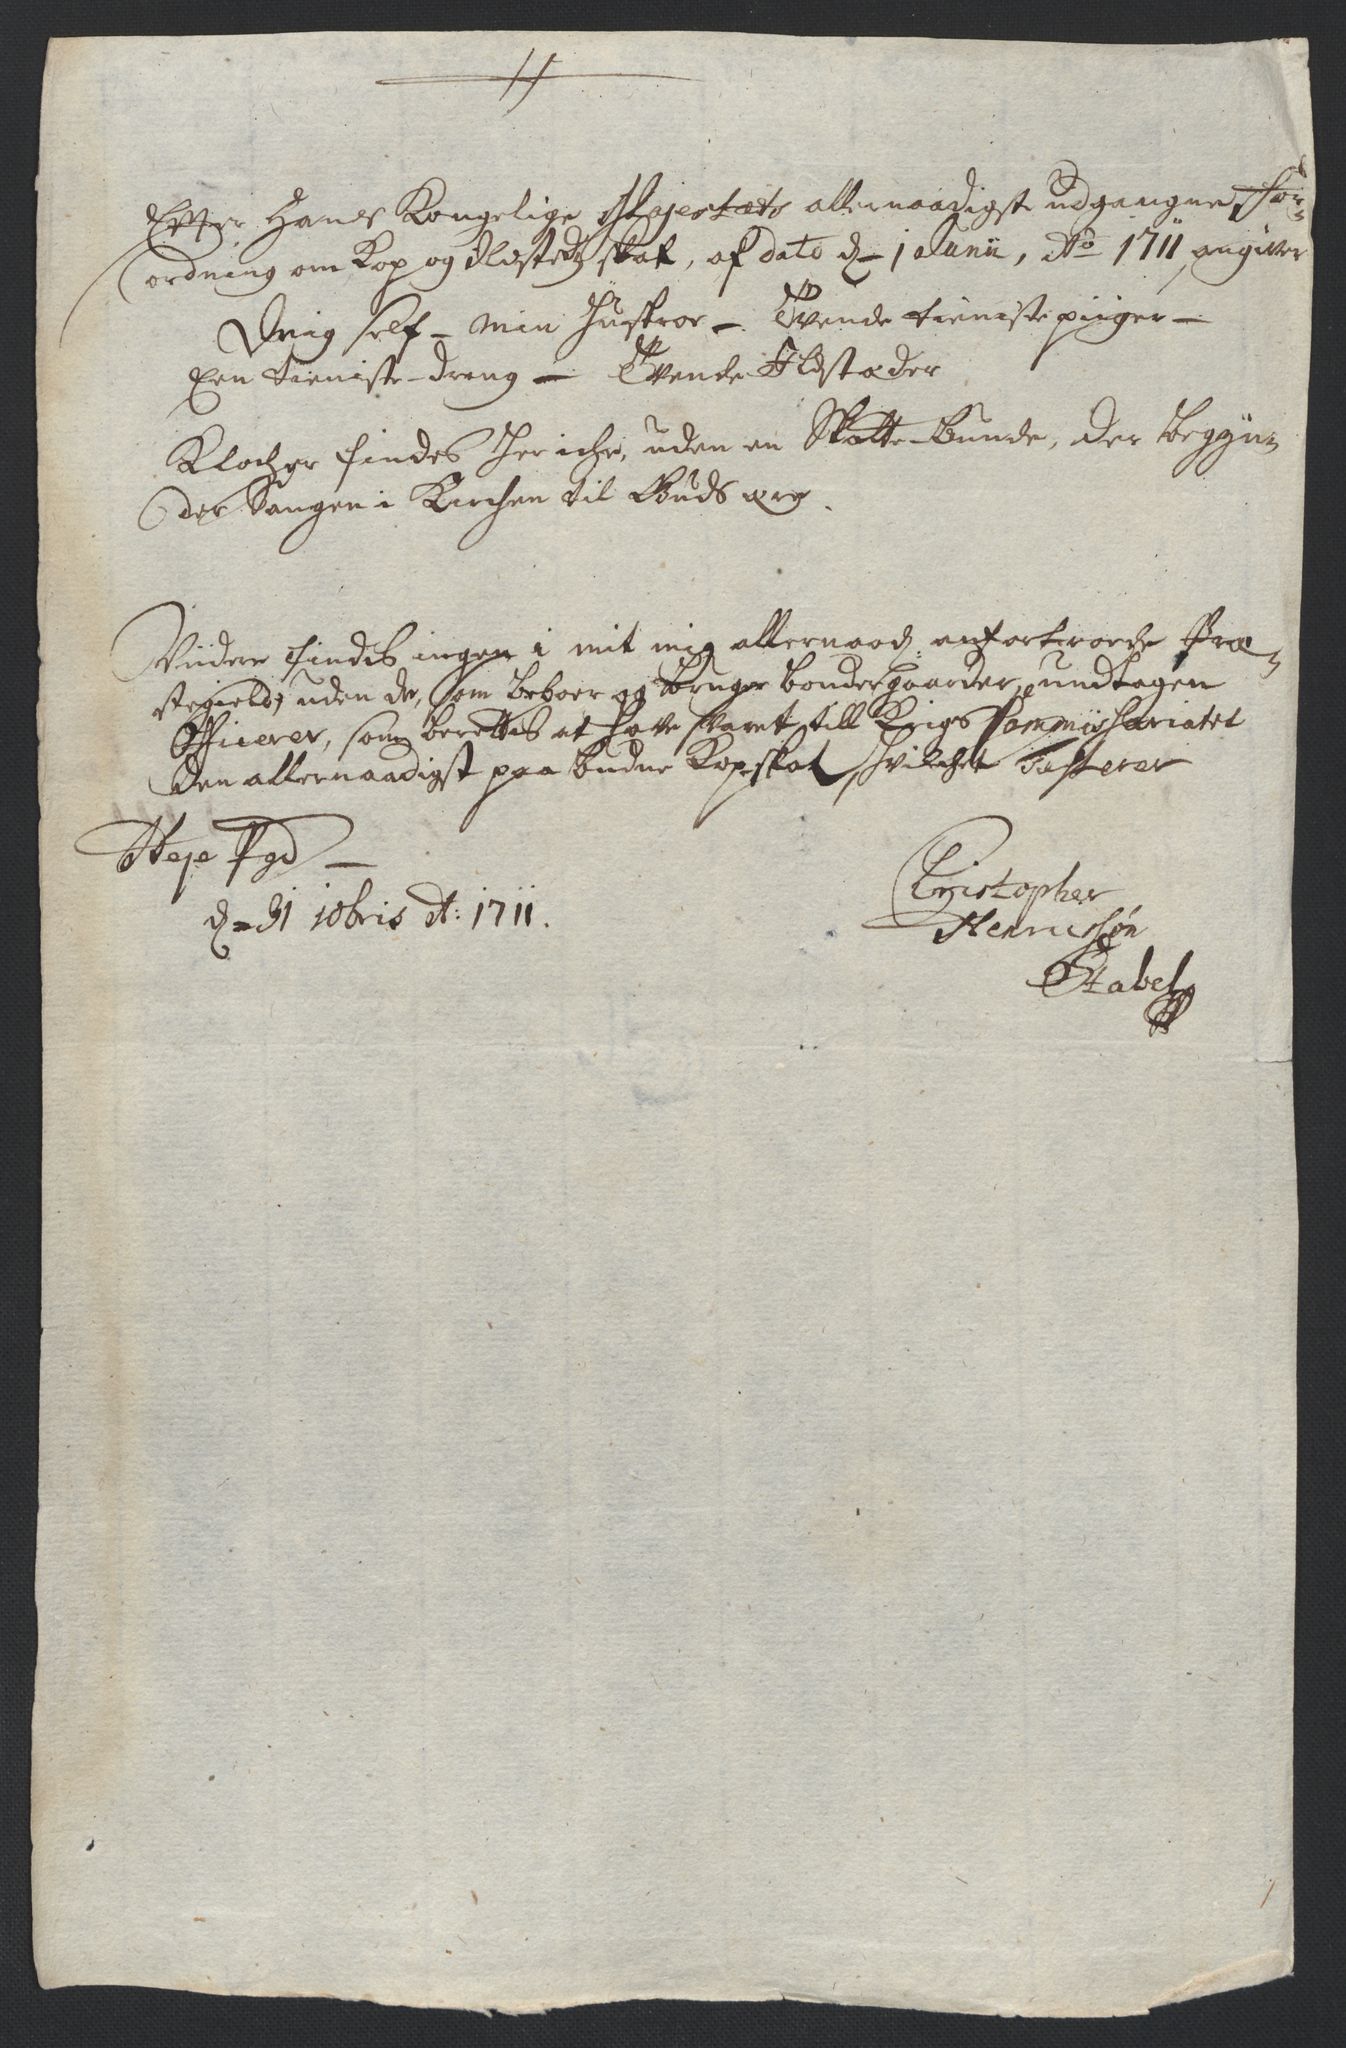 Efter Hans Kongelige Mayestæts allernaadigste udgangne For-
ordning om Kop og Ildsteds skat, af dato d. 1 Junii, Ao 1711 angiver
Mig self - Min Hustroe - Tvende tieniste piiger -
Een tieniste-dreng - Tvende Ildstæder
Klocher findes Her iche, uden en Skatte-Bunde, der begyn-
der Sangen i Kirchen til Guds ære.
Viidere findis ingen i mit mig allernaad: anfortroede Præ-
stegield, uden de, som beboer og bruger bondergaarder, undtagen
Officerer, som berettis at have svaret till Krigs Commissariatet
den allernaadigst paa budne Kopskat, Hvilchet Testerer
Næse Pgd
d. 31 10bris A: 1711.
Christopher
Henricssøn
Stabel